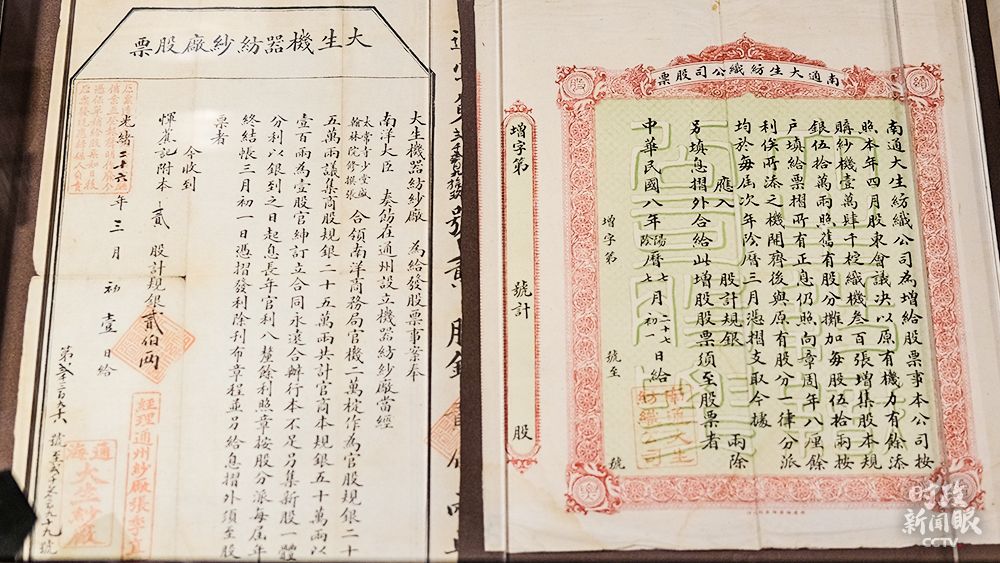 大生機器紡紗廠股票
大生機器紡紗廠 為給發股票事案奉
南洋大臣 奏飭在通州設立機器紡紗廠當經
太常寺堂盛
翰林院修撰張
合領南洋商務局官機二萬梃作為官股規銀二十
五萬兩議集商股規銀二十五萬兩共計官商本規銀五十萬兩以
壹百兩為壹股官紳訂立合同永遠合辦行本不足另集新股一體
分利以銀到之日起息長年官利八釐餘利照章按股分派每屆年
終結帳三月初一日憑摺發利除刊布章程並另給息摺外須至股
票者
今收到
惲莧記附本 貳 股計規銀貳伯兩
光緒二十六年三月 初 壹 日給
經理通州紗廠張季直
通海大生紗廠
南通大生紡織公司股票
南通大生紡織公司為增給股票事本公司按
照本年四月股東會議決以原有機力有餘添
購紗機壹萬肆千梃織機叁百張增集股本規
銀伍拾萬兩照舊有股分攤加每股伍拾兩按
戶填給票摺所有正息仍照向章周年八厘餘
利俟所添之機開齊後與原有股分一律分派
均於每屆次年陰曆三月憑摺支取今據
應入 股計規銀 兩除
另填息摺外合給此增股股票須至股票者
中華民國八年陽曆七月二十七日給
陰曆七月初一
南通大生紡織公司
增字第 號至 號
增字第 號計 股
时政新闻眼
CCTV